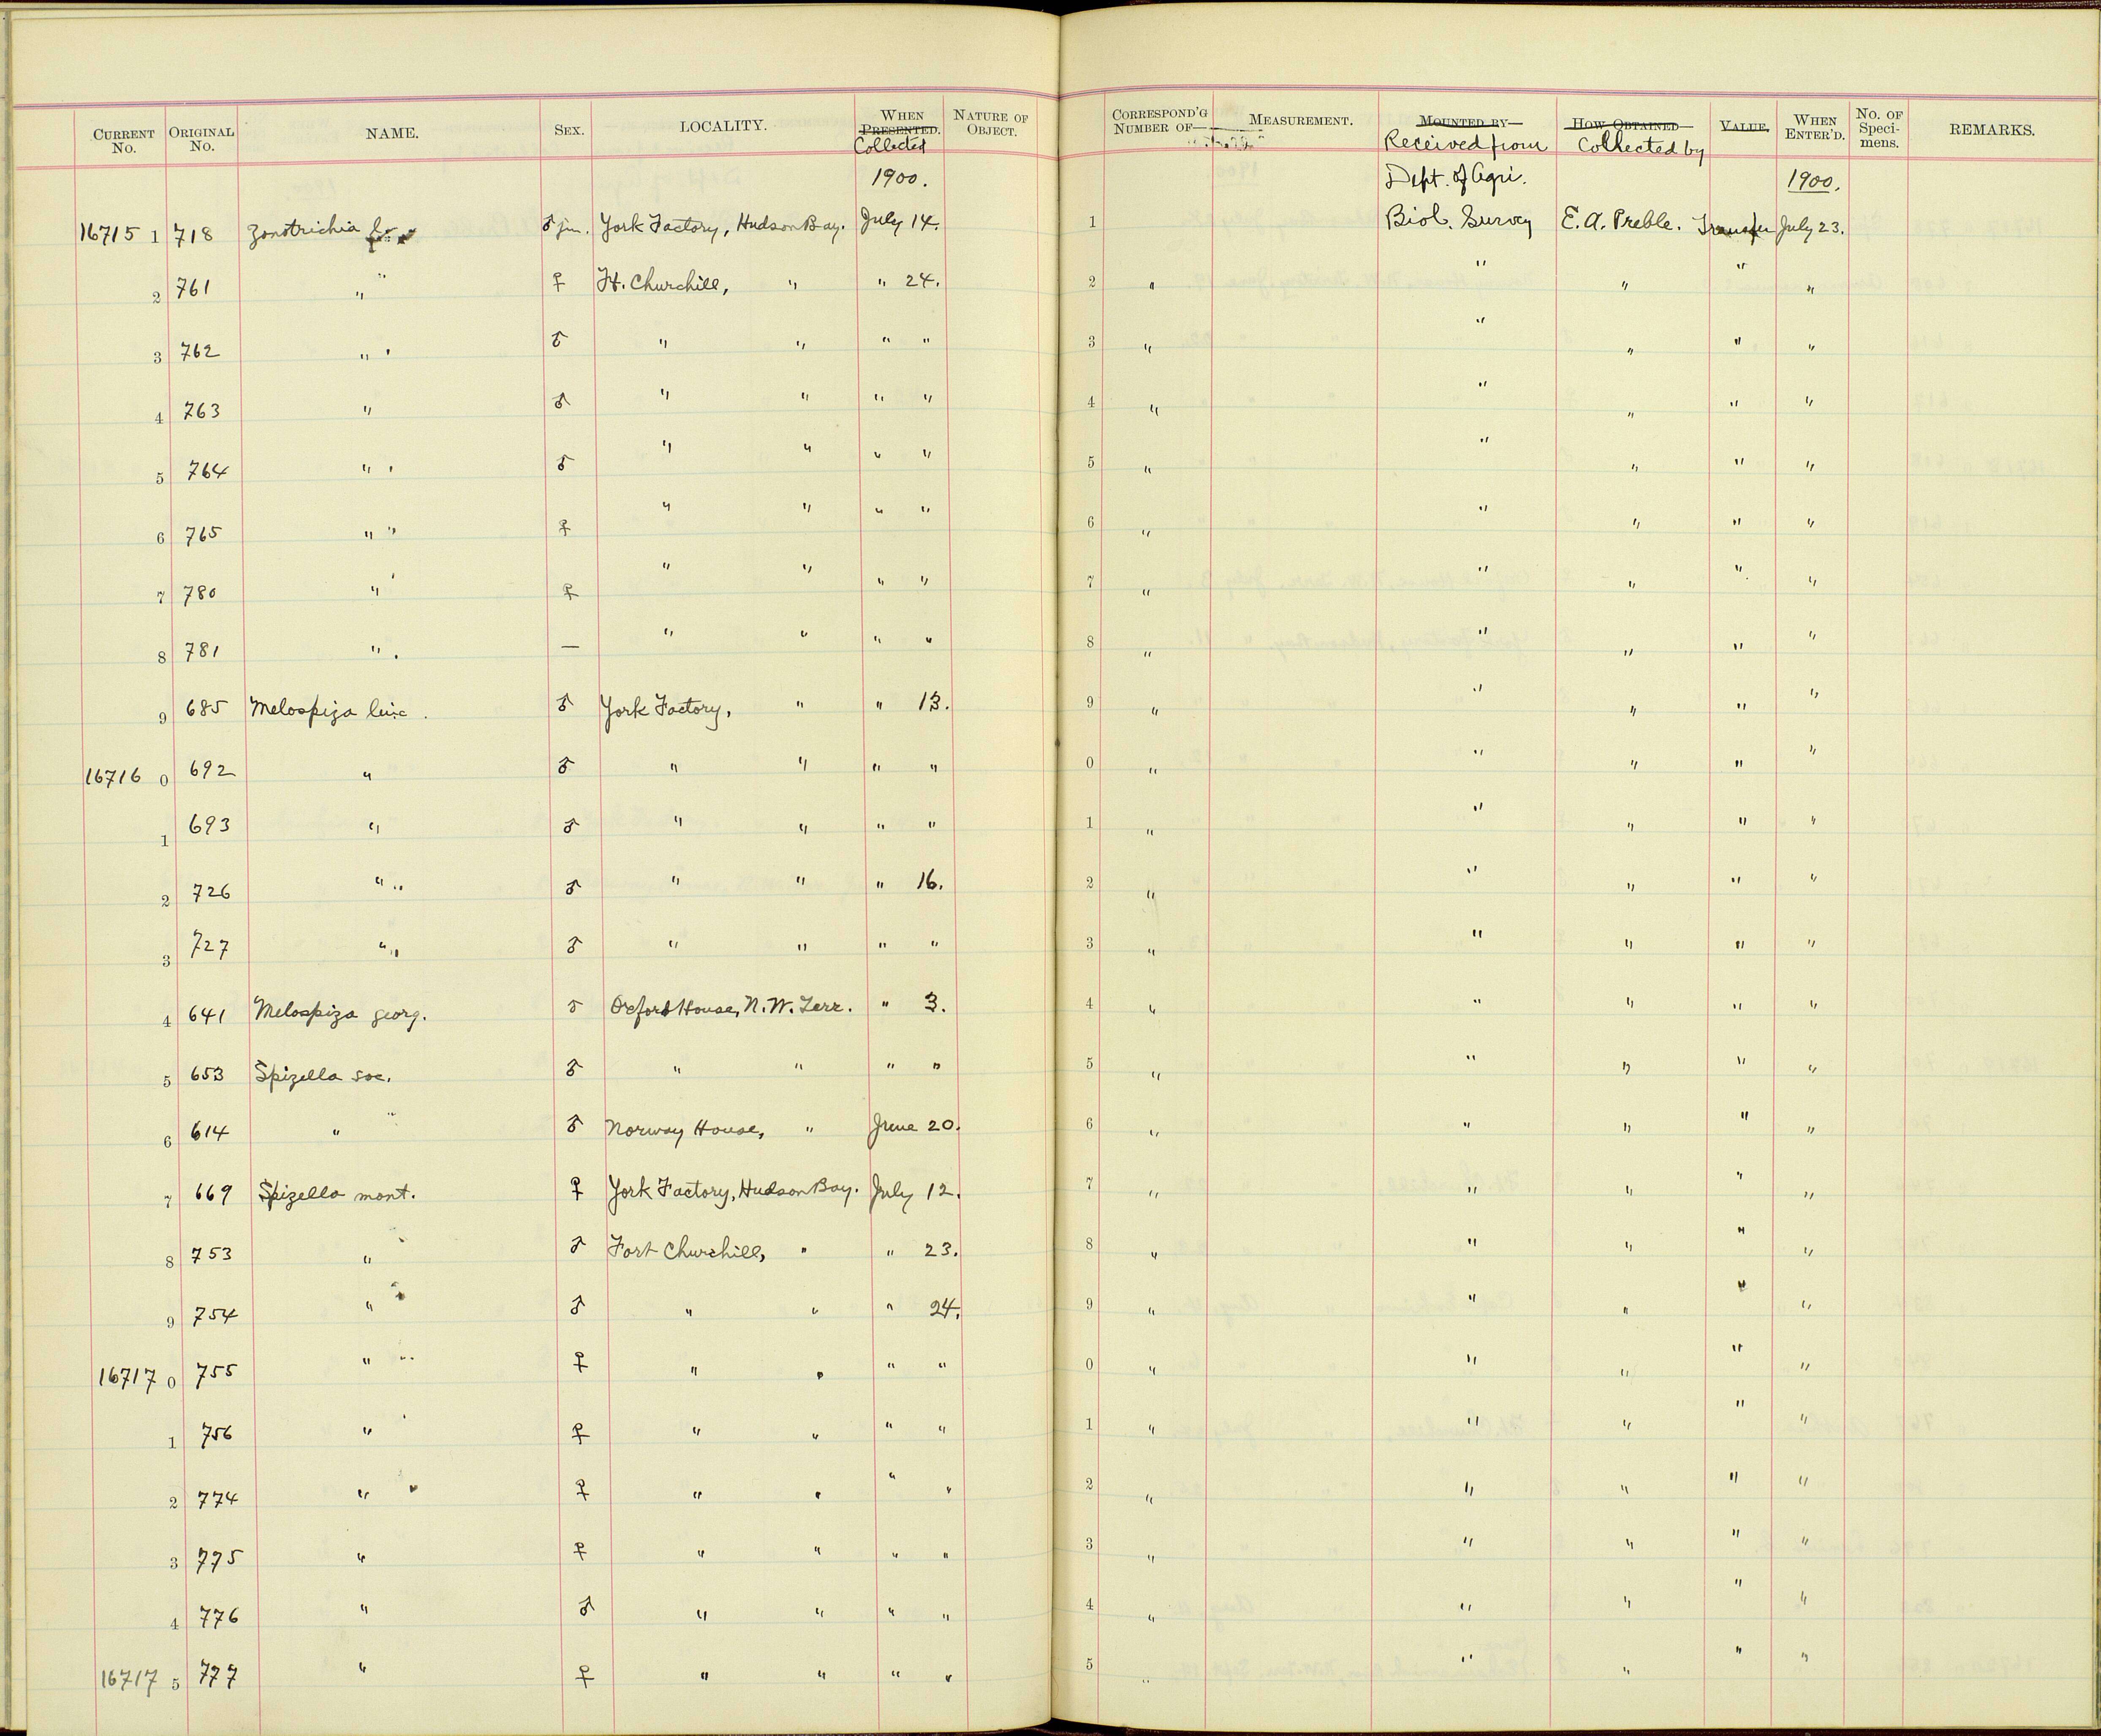 CURRENT No. ORIGINAL No. NAME. SEX. LOCALITY. WHEN PRESENTED. Collected NATURE OF OBJECT. CORRESPOND'G NUMBER OF— MEASUREMENT. MOUNTED BY— Received from HOW OBTAINED— Collected by VALUE. WHEN ENTER'D. No. OF Speci-mens. REMARKS.
1900. Dept. of Agri. 1900.
16715 1 718 Zonotrichia ♂ juv. York Factory, Hudson Bay. July 14. 1 Biol. Survey E. A. Preble. Transfer July 23.
2 761 " " ♀ Ft. Churchill, " " 24. 2 " " " " "
3 762 " " ♂ " " " " 3 " " " " "
4 763 " ♂ " " " " 4 " " " " "
5 764 " " ♂ " " " " 5 " " " " "
6 765 " " ♀ " " " " 6 " " " " "
7 780 " ' ♀ " " " " 7 " " " " "
8 781 " . — " " " " 8 " " " " "
9 685 Melospiza linc. ♂ York Factory, " " 13. 9 " " " " "
16716 0 692 " ♂ " " " " 0 " " " " "
1 693 " ♂ " " " " 1 " " " " "
2 726 " " ♂ " " " 16. 2 " " " " "
3 727 " " ♂ " " " " 3 " " " " "
4 641 Melospiza georg. ♂ Oxford House, N.W. Terr. " 3. 4 " " " " "
5 653 Spizella soc. ♂ " " " " 5 " " " " "
6 614 " " ♂ Norway House, " June 20. 6 " " " " "
7 669 Spizella mont. ♀ York Factory, Hudson Bay. July 12. 7 " " " " "
8 753 " ♂ Fort Churchill, " " 23. 8 " " " " "
9 754 " " ♂ " " " 24. 9 " " " " "
16717 0 755 " " ♀ " " " " 0 " " " " "
1 756 " ' ♀ " " " " 1 " " " " "
2 774 " " ♀ " " " " 2 " " " " "
3 775 " ♀ " " " " 3 " " " " "
4 776 " ♂ " " " " 4 " " " " "
16717 5 777 " ♀ " " " " 5 " " " " "